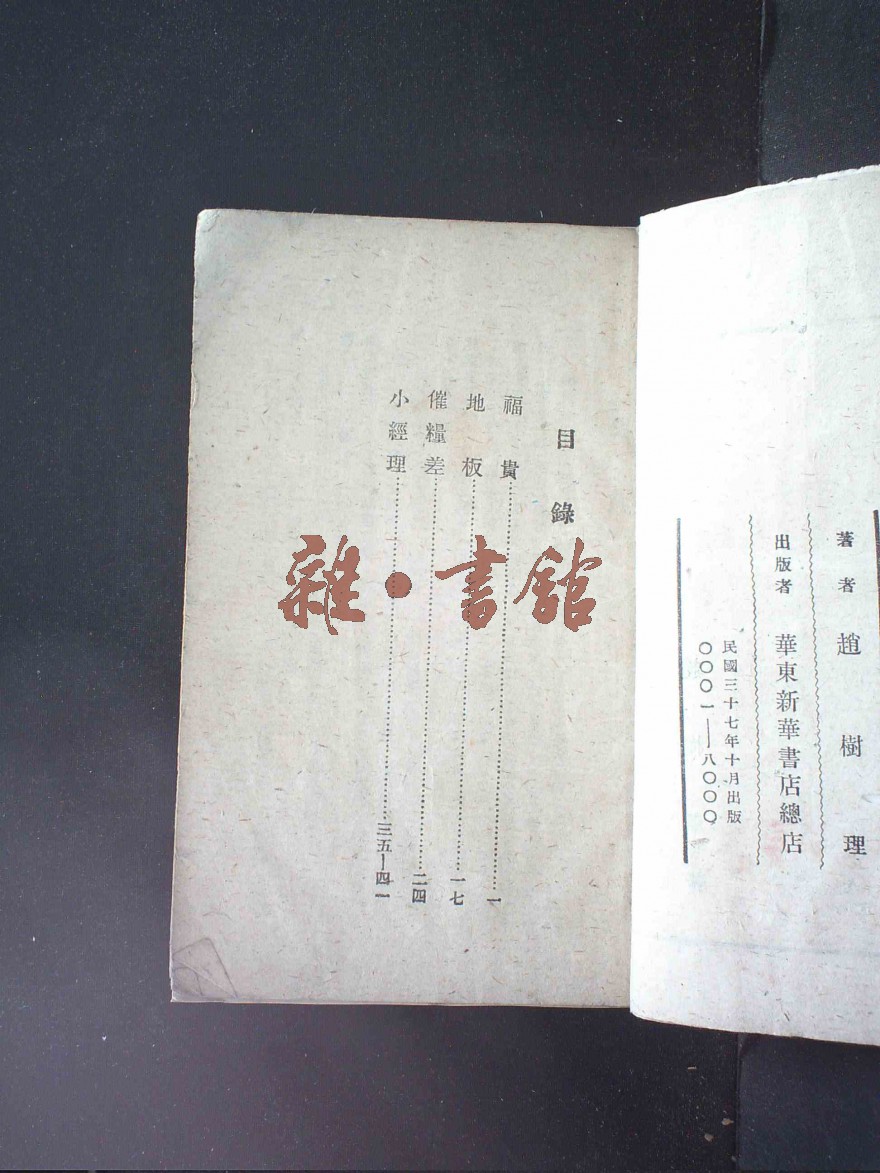 著者 趙樹理
出版者 華東新華書店總店
民國三十七年十月出版
〇〇〇一——八〇〇〇
目錄
福貴……一
地板……一七
催糧差……二四
小經理……三五—四一
雜·書館